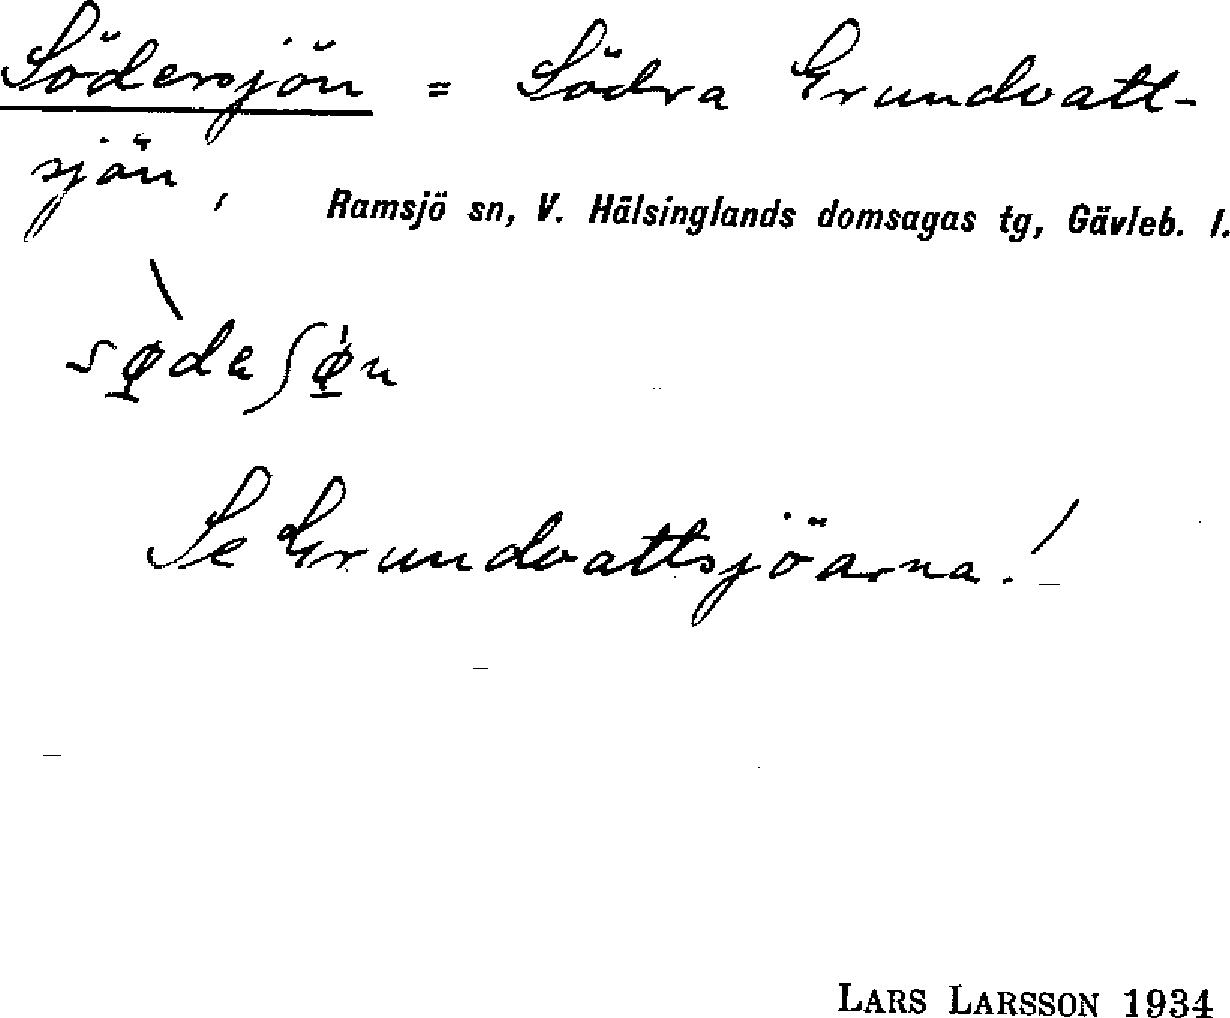 Södersjön = Södra Grundvatt-
sjön, Ramsjö sn, V. Hälsinglands domsagas tg, Gävleb. l.
Se Grundvattsjöarna!
LARS LARSSON 1934